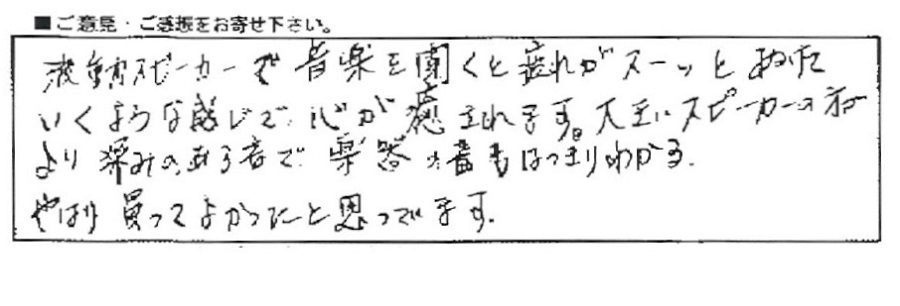 ■ご意見・ご感想をお寄せ下さい。
波動スピーカーで音楽を聞くと疲れがスーッとぬけた
いくような感じで、心が癒されます。大きいスピーカーの
より深みのある音で、楽器の音もはっきりわかる。
やはり買ってよかったと思っています。